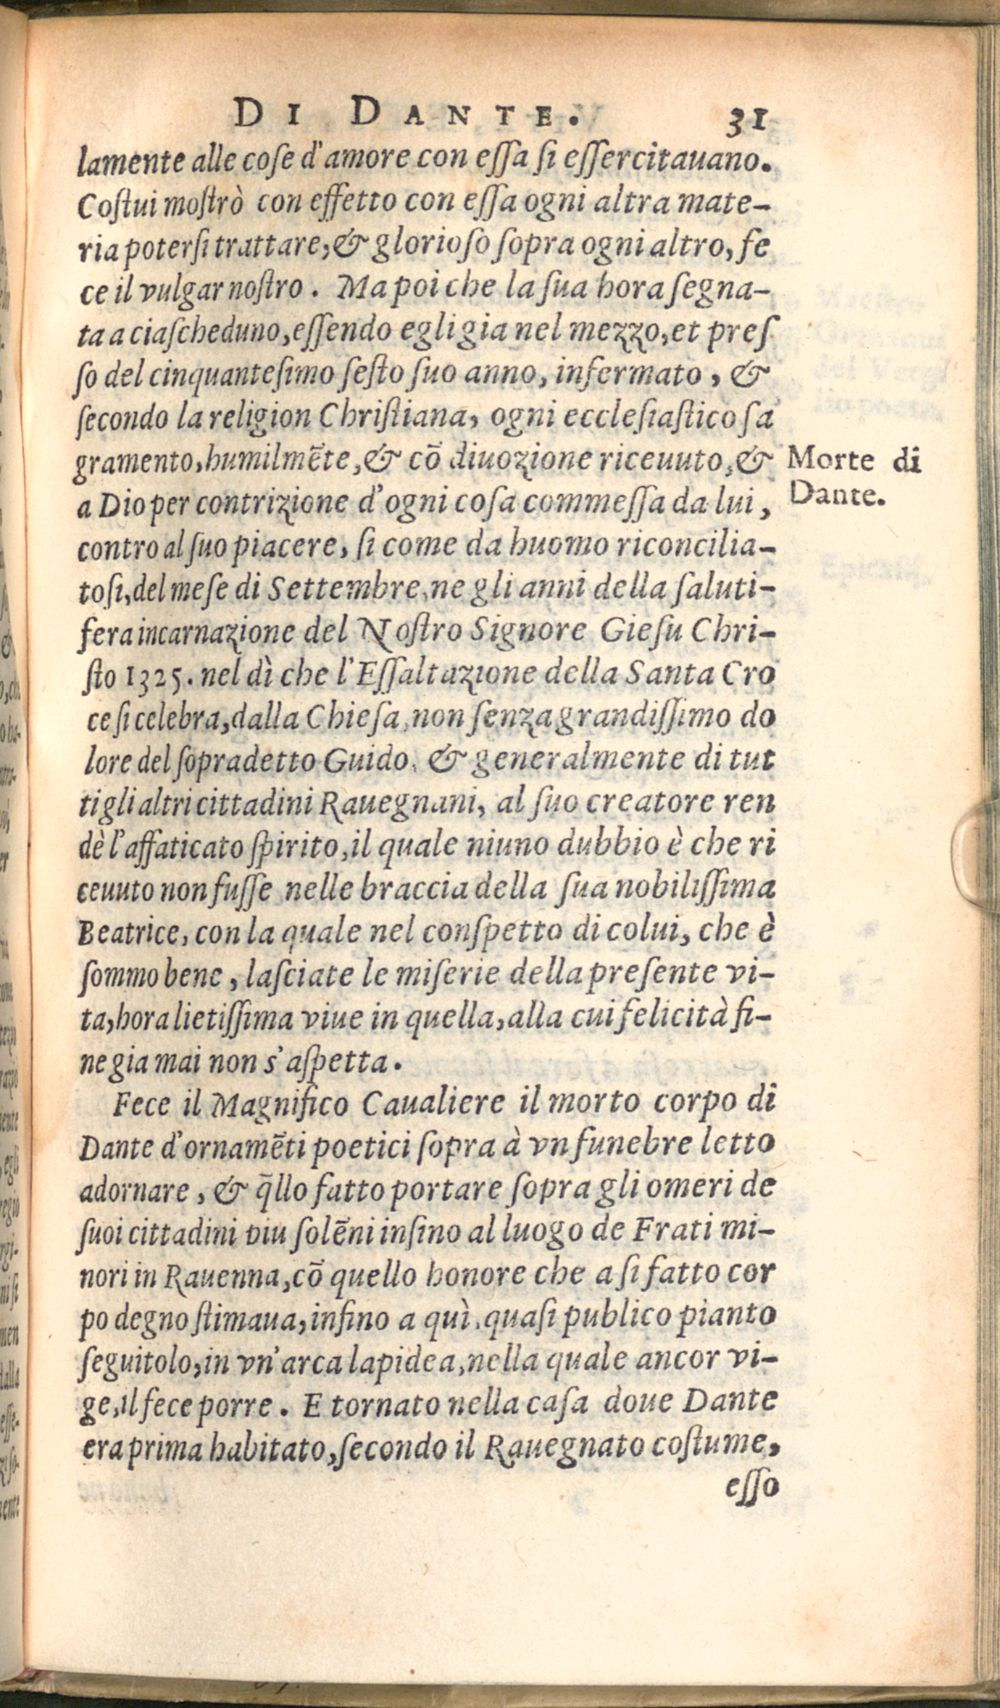 DI DANTE. 31
lamente alle coſe d'amore con eſſa ſi eſſercitauano.
Coſtui moſtrò con effetto con eſſa ogni altra mate-
ria poterſi trattare, & glorioſo ſopra ogni altro, fe
ce il vulgar noſtro. Ma poi che la ſua hora ſegna-
ta a ciaſcheduno, eſſendo egli gia nel mezzo, et preſ
ſo del cinquanteſimo ſeſto ſuo anno, infermato, &
ſecondo la religion Chriſtiana, ogni eccleſiaſtico ſa
gramento, humilmēte, & cō diuozione riceuuto, &
a Dio per contrizione d'ogni coſa commeſſa da lui,
contro al ſuo piacere, ſi come da huomo riconcilia-
toſi, del meſe di Settembre, ne gli anni della ſaluti-
fera incarnazione del Noſtro Signore Gieſu Chri-
ſto 1325. nel dì che l'Eſſaltazione della Santa Cro
ce ſi celebra, dalla Chieſa, non ſenza grandiſſimo do
lore del ſopradetto Guido, & generalmente di tut
ti gli altri cittadini Rauegnani, al ſuo creatore ren
dè l'affaticato ſpirito, il quale niuno dubbio è che ri
ceuuto non fuſſe nelle braccia della ſua nobiliſſima
Beatrice, con la quale nel conſpetto di colui, che è
ſommo bene, laſciate le miſerie della preſente vi-
ta, hora lietiſſima viue in quella, alla cui felicità fi-
ne gia mai non s'aſpetta.
Fece il Magnifico Caualiere il morto corpo di
Dante d'ornamēti poetici ſopra à vn funebre letto
adornare, & q̄llo fatto portare ſopra gli omeri de
ſuoi cittadini piu ſolēni inſino al luogo de Frati mi-
nori in Rauenna, cō quello honore che a ſi fatto cor
po degno ſtimaua, inſino a quì, quaſi publico pianto
ſeguitolo, in vn'arca lapidea, nella quale ancor vi-
ge, il fece porre. E tornato nella caſa doue Dante
era prima habitato, ſecondo il Rauegnato coſtume,
eſſo
Morte di
Dante.